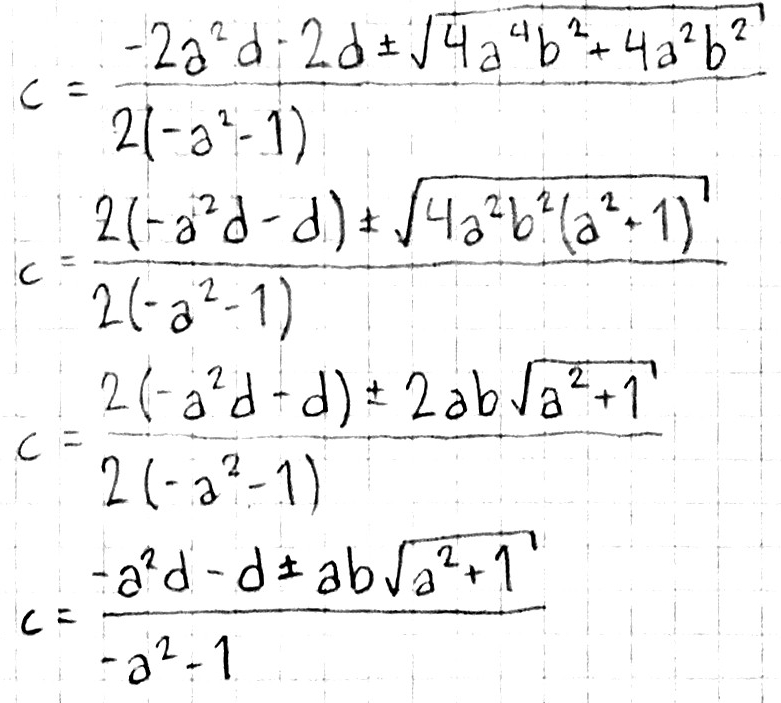 c = (-2a²d - 2d ± √(4a⁴b² + 4a²b²)) / (2(-a² - 1))
c = (2(-a²d - d) ± √(4a²b²(a² + 1))) / (2(-a² - 1))
c = (2(-a²d - d) ± 2ab√(a² + 1)) / (2(-a² - 1))
c = (-a²d - d ± ab√(a² + 1)) / (-a² - 1)